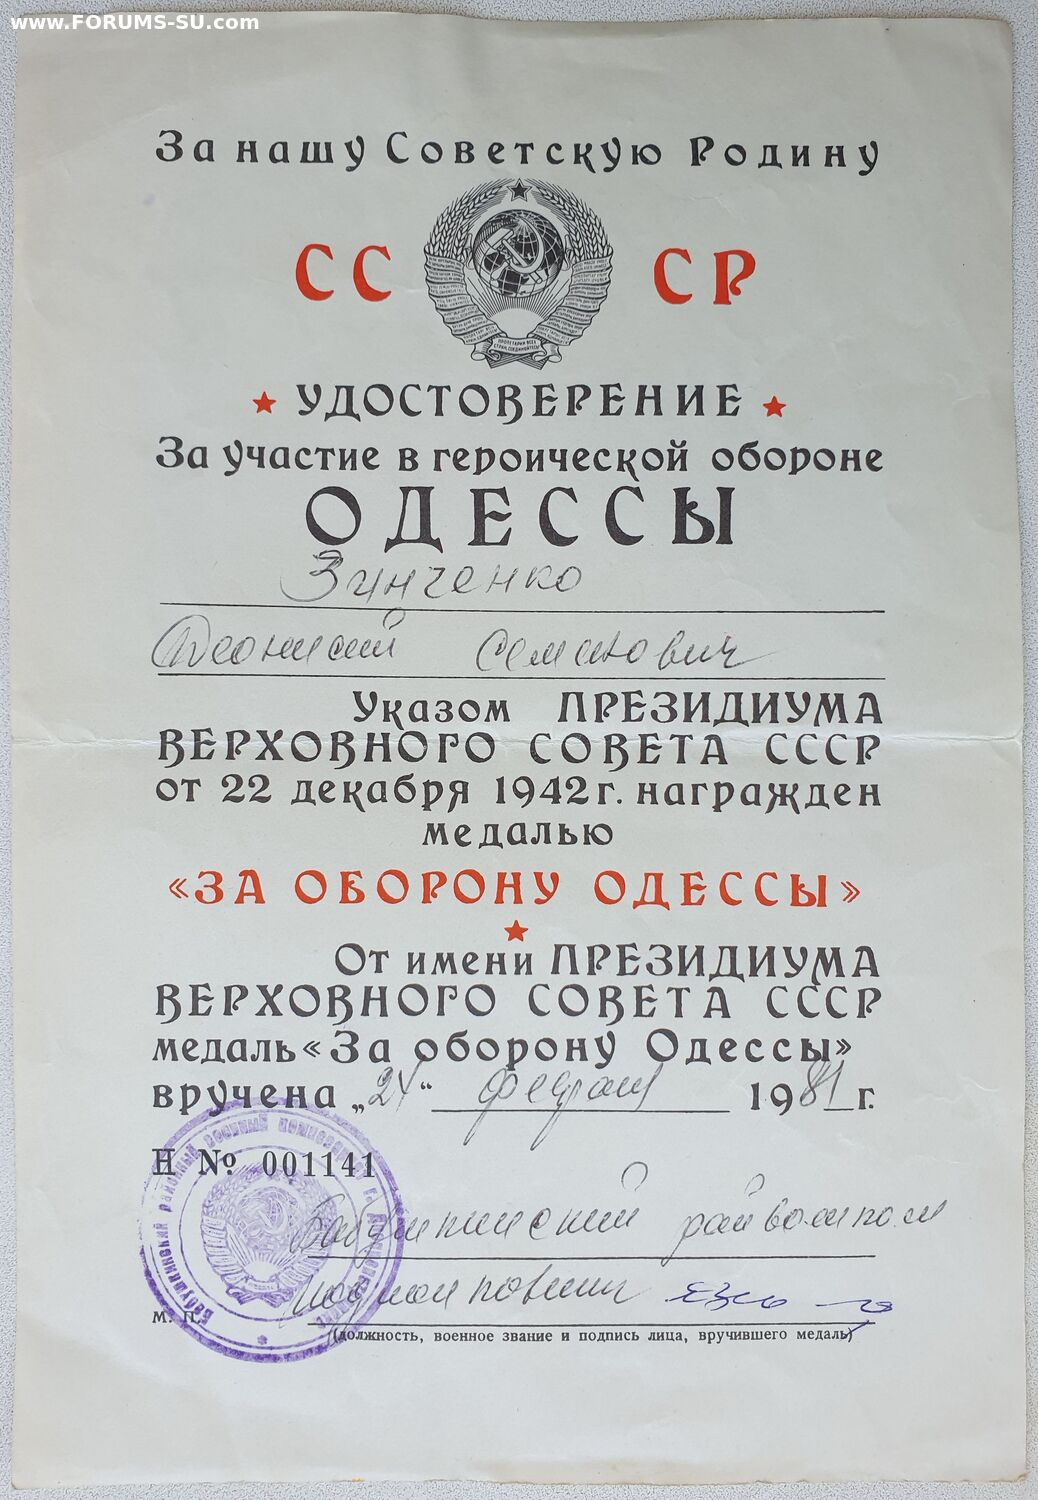 www.FORUMS-SU.com
За нашу Советскую Родину
СС СР
УДОСТОВЕРЕНИЕ
За участие в героической обороне
ОДЕССЫ
Зинченко
Дионисий Семенович
Указом ПРЕЗИДИУМА
ВЕРХОВНОГО СОВЕТА СССР
от 22 декабря 1942 г. награжден
медалью
«ЗА ОБОРОНУ ОДЕССЫ»
От имени ПРЕЗИДИУМА
ВЕРХОВНОГО СОВЕТА СССР
медаль «За оборону Одессы»
вручена „24“ февраля 1981 г.
Н № 001141
Бабушкинский райвоенком
подполковник
М. П.
(должность, военное звание и подпись лица, вручившего медаль)
Бабушкинский районный военный комиссариат г.